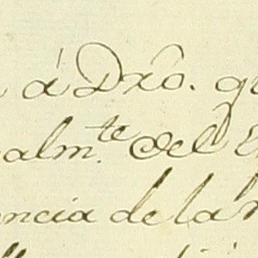 á Dro. q
alm.te del E
encia de la